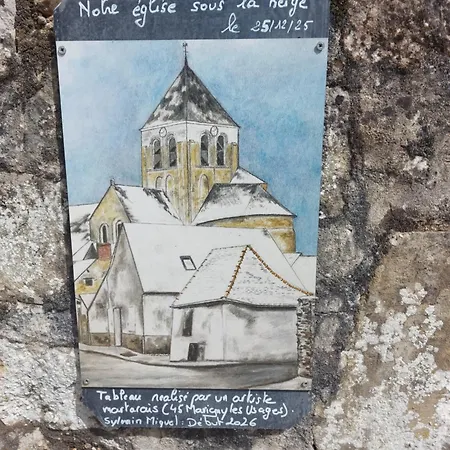 Notre église sous la neige
le 25/12/25
Tableau réalisé par un artiste
martarais (45 Marigny les Usages).
Sylvain Miquel : Début 2026